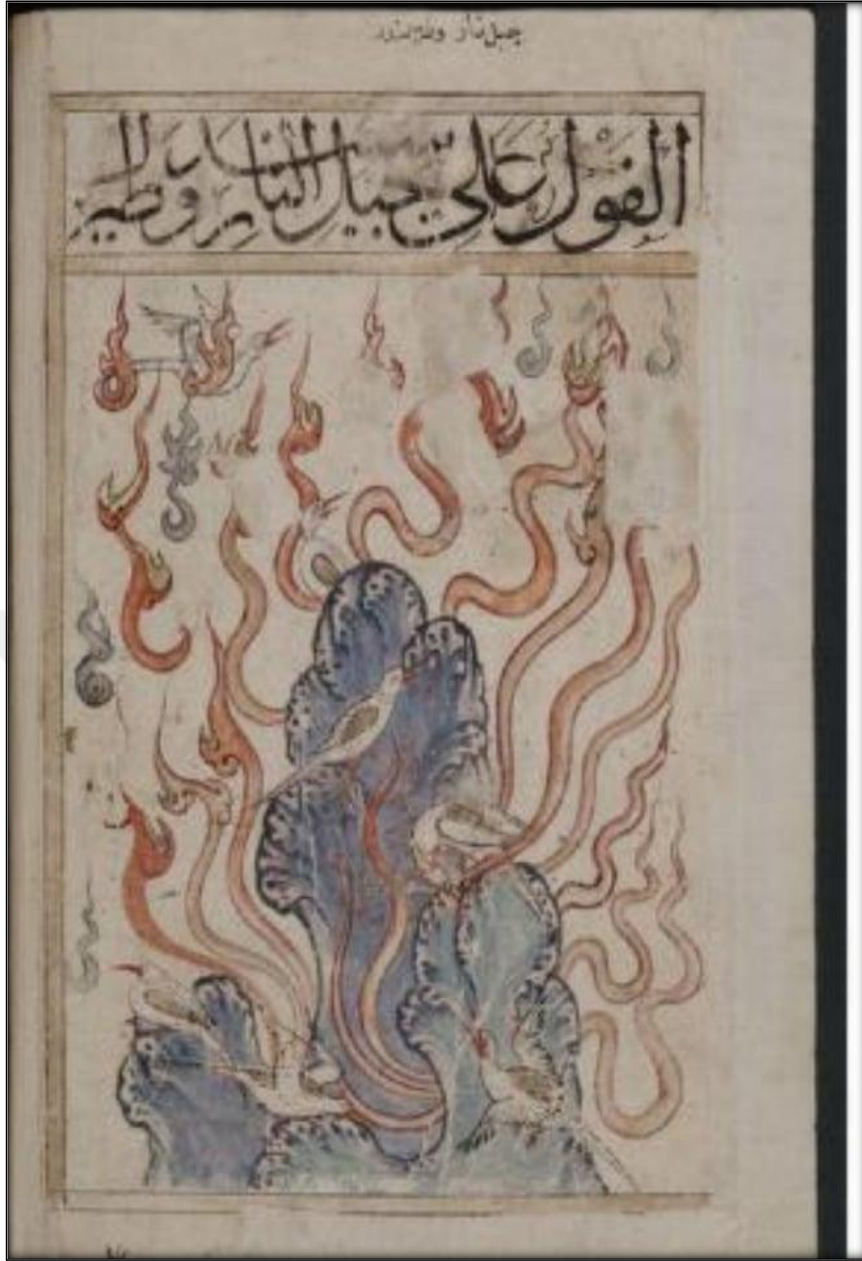 جبل نار
القول على جبل النار وطير